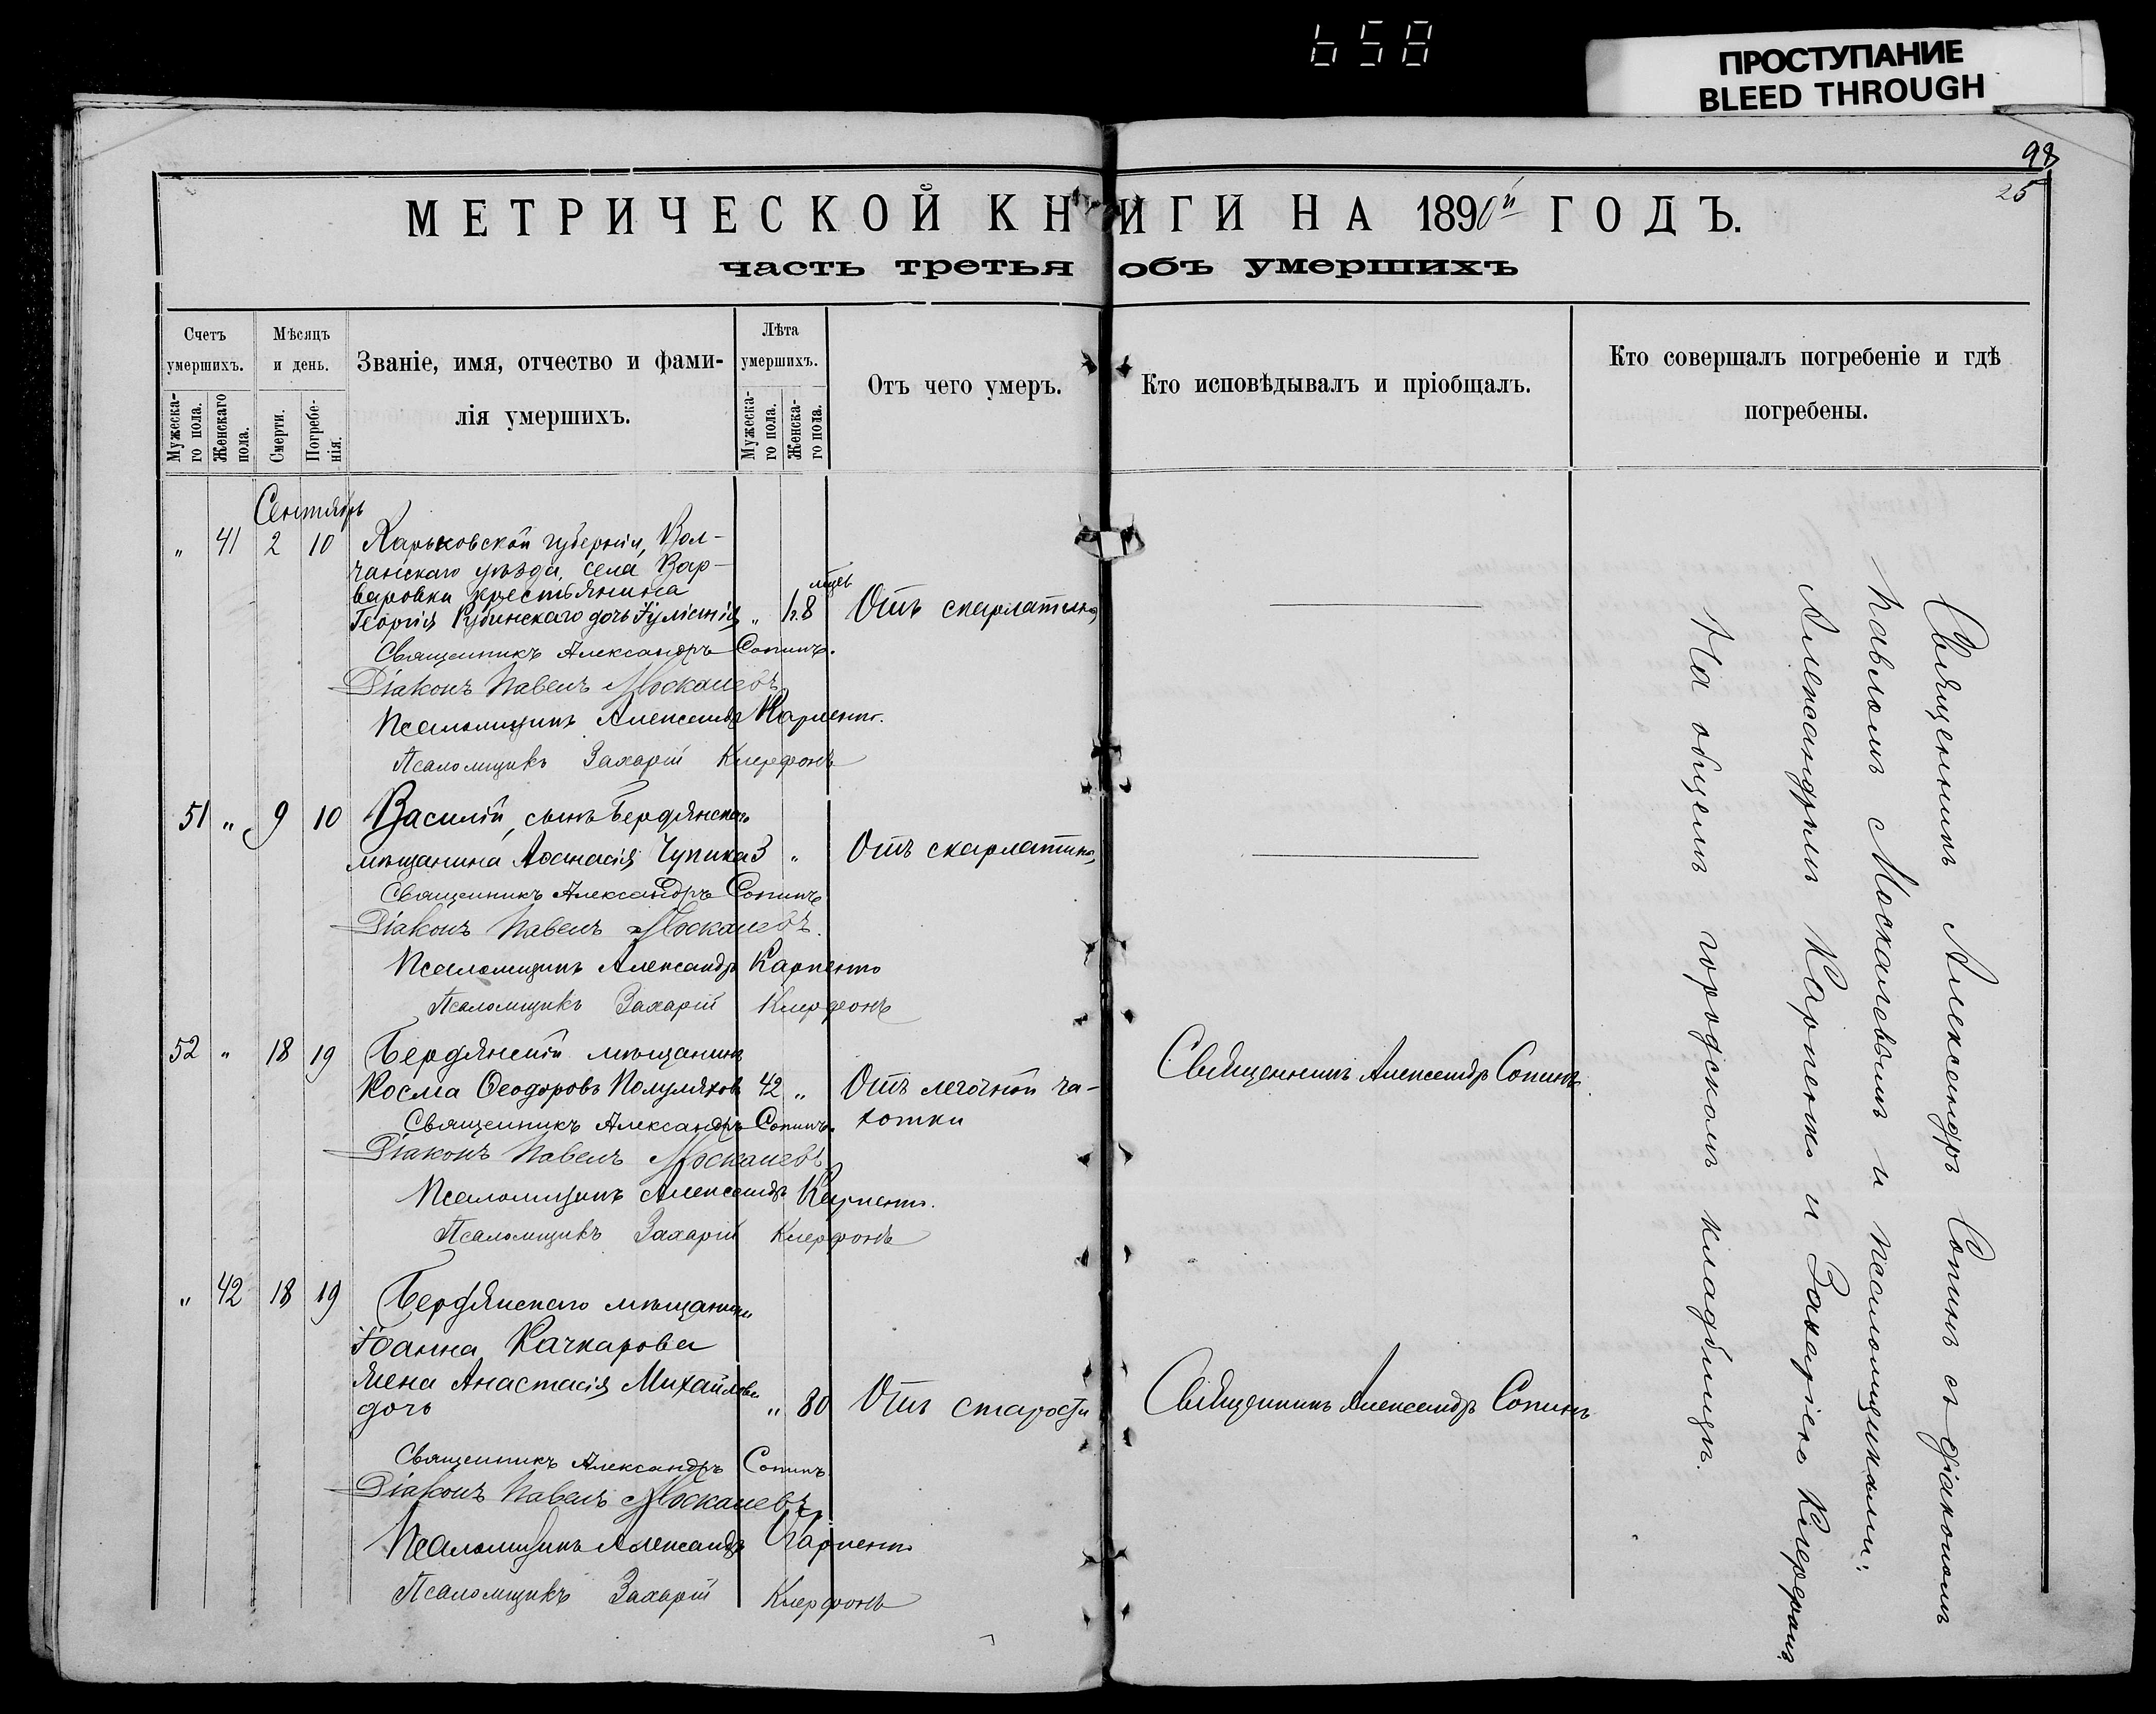 658
ПРОСТУПАНИЕ
BLEED THROUGH
98
25
МЕТРИЧЕСКОЙ КНИГИ НА 1890й ГОДЪ.
часть третья объ умершихъ
Счетъ умершихъ.
Мужеска-го пола.
Женскаго пола.
Мѣсяцъ и день.
Смерти.
Погребе-нія.
Званіе, имя, отчество и фами-
лія умершихъ.
Лѣта умершихъ.
Мужеска-го пола.
Женска-го пола.
Отъ чего умеръ.
Кто исповѣдывалъ и пріобщалъ.
Кто совершалъ погребеніе и гдѣ
погребены.
Сентябрь
" 41 2 10 Харьковской губерніи, Вол-
чанскаго уѣзда, села Вар-
варовки крестьянина
Георгія Рубинскаго дочь " 8 мцевъ Отъ скарлатины
Священникъ Александръ Сопинъ.
Діаконъ Павелъ Москалевъ
Псаломщикъ Александръ Карпенко.
Псаломщикъ Захарій
51 " 9 10 Василій, сынъ Бердянскаго
мѣщанина Аѳанасія Чупика 3 " Отъ скарлатины
Священникъ Александръ Сопинъ
Діаконъ Павелъ Москалевъ.
Псаломщикъ Александръ Карпенко
Псаломщикъ Захарій
52 " 18 19 Бердянскій мѣщанинъ
Косма Ѳеодоровъ Полуляховъ 42 " Отъ легочной ча-
хотки
Священникъ Александръ Сопинъ
Священникъ Александръ Сопинъ.
Діаконъ Павелъ Москалевъ
Псаломщикъ Александръ Карпенко.
Псаломщикъ Захарій
" 42 18 19 Бердянскаго мѣщанина
Іоанна Качкарова
жена Анастасія Михайлова
дочь " 80 Отъ старости Священникъ Александръ Сопинъ
Священникъ Александръ Сопинъ
Діаконъ Павелъ Москалевъ
Псаломщикъ Александръ Карпенко
Псаломщикъ Захарій
Священникъ Александръ Сопинъ съ діакономъ
Павломъ Москалевымъ и псаломщиками:
Александромъ Карпенко и Захаріею
На общемъ городскомъ кладбищѣ.